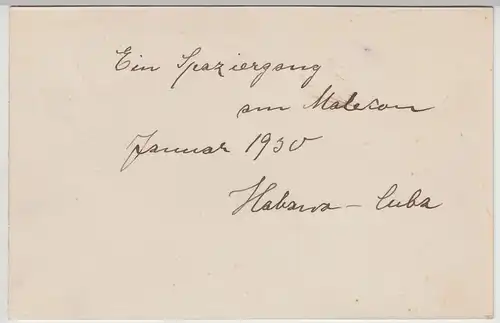 Ein Spaziergang
am Malecon
Januar 1930
Habana – Cuba